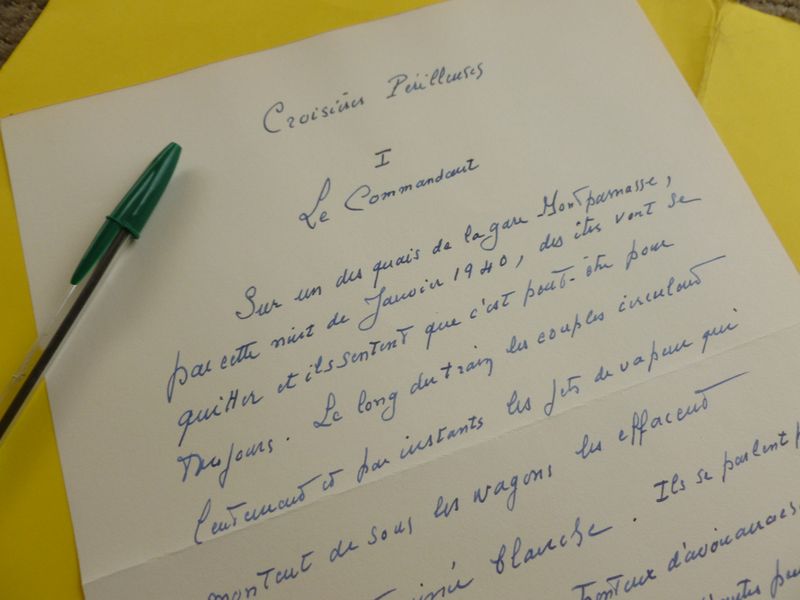 Croisières Périlleuses
I
Le Commandant
Sur un des quais de la gare Montparnasse,
par cette nuit de Janvier 1940, des êtres vont se
quitter et ils sentent que c'est peut-être pour
toujours. Le long du train les couples circulent
lentement et par instants les jets de vapeur qui
montent de sous les wagons les effacent
blanche. Ils se parlent
honteux d'avoir